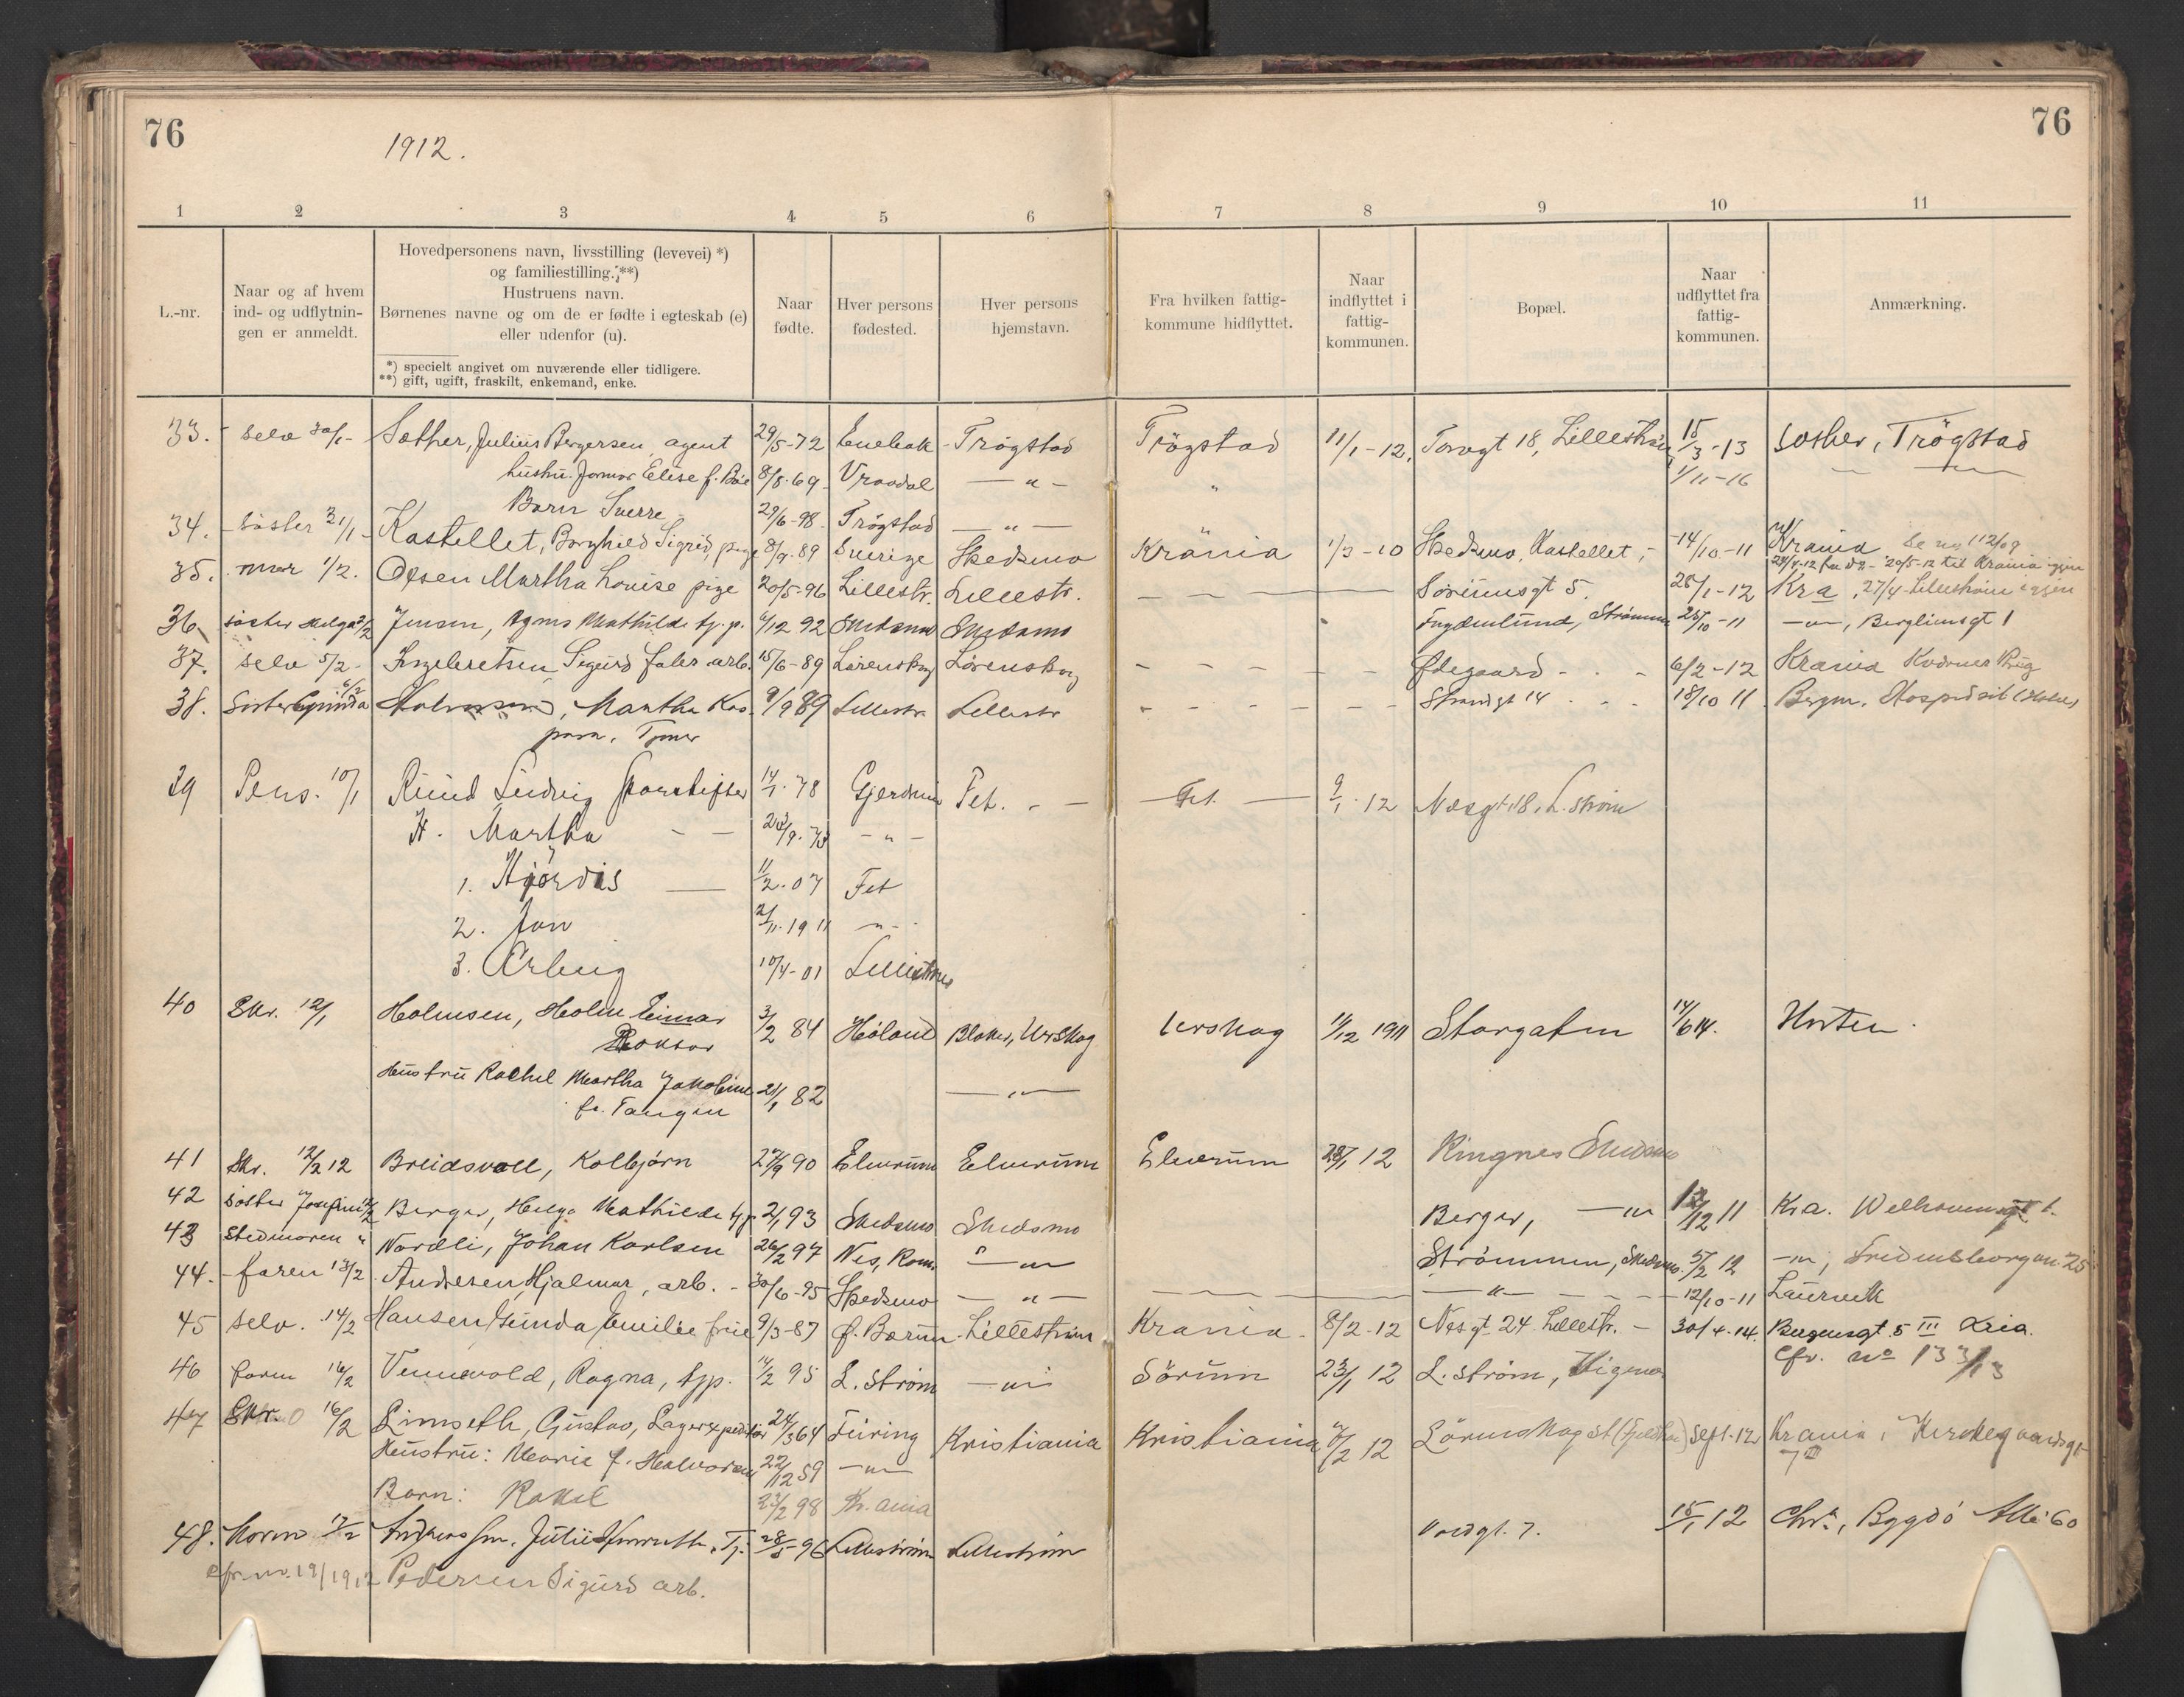 76
1912.
76
1 2 3 4 5 6 7 8 9 10 11
L.-nr.
Naar og af hvem ind- og udflytnin- gen er anmeldt.
Hovedpersonens navn, livsstilling (levevei) *)
og familiestilling. **)
Hustruens navn.
Børnenes navne og om de er fødte i egteskab (e)
eller udenfor (u).
*) specielt angivet om nuværende eller tidligere.
**) gift, ugift, fraskilt, enkemand, enke.
Naar fødte.
Hver persons fødested.
Hver persons hjemstavn.
Fra hvilken fattig- kommune hidflyttet.
Naar indflyttet i fattig- kommunen.
Bopæl.
Naar udflyttet fra fattig- kommunen.
Anmærkning.
33. selv 30/1- Sæther, Julius Bergersen, agent 29/5-72 Enebak Trøgstad Trögstad 11/1-12. Torvgt 18, Lillestrøm 15/3-13 Sæther, Trögstad
hustru Elise f. 8/8-69 Vraadal — " — " 1/11-16 — —
Barn Sverre 29/6-98 Trögstad — " —
34. søster 31/1- Kastellet, Borghild Sigrid, pige 8/9-89 Sverige Skedsmo Krania 1/3-10 Skedsmo, Kastellet, - 14/10-11 Krania Se no 112/09
24/4-12 20/5-12 til Krania igjen
35. mor 1/2. Olsen Martha Lovise pige 20/5-96 Lillestr. Lillestr. Sørumsgt 5. 28/1-12 Kra, 27/4 Lillestrøm igjen
36. søster Helga 3/2 Jensen, Agnes Mathilde tj. p. 6/12 92 Skedsmo Skedsmo Strømmen 25/10-11 — " —, Bergliensgt 1
37. selv 5/2- Ingebretsen Sigurd fabr. arb. 15/6-89 Lørenskog Lørenskog Ødegaard - - - 6/2-12 Krania
38. Søster Gunda 6/2 Martha Kas- 9/9 89 Lillestr Lillestr Strandgt 14 18/10 11
para, Tjener
39 Pens. 10/1 Ruud Ludvig 14/1-78 Gjerdrum Fet. - — Fet. — 9/1-12 Næsgt 18, L. strøm
H. Martha - - — " —
1. Hjördis — 11/2-07 Fet
2. Jon 2/11-1911 — " -
3. Erling 10/4-01 Lillestrøm
40 Skr. 12/1 Holmsen, Holm Einar 3/2 84 Høland Blaker, Urskog Urskog 11/12 1911 Storgaten 14/6 14. Horten.
Doktor
Hustru Rachel Martha Jakobine 21/1 82 — " —
fr. Tangen
41 Skr. 12/2 12 Breidsvoll, Kolbjørn 27/9 90 Elverum Elverum Elverum 28/1 12 Ringnes Skedsmo
42 søster Josefine 12/2 Berger, Helga Mathilde tjp. 2/1 93 Skedsmo Skedsmo Berger, — " 12/12 11 Kra.
43 Stedmoren " Nordli, Johan Karlsen 26/2 97 Nes, Rom. — " — Strømmen, Skedsmo. 5/2 12 — " —, Fredensborgvn. 25
44. - faren 13/2. Andresen, Hjalmar, arb. - 30/6-95 Skedsmo — " — — " — 12/10-11 Laurvik
45 selv. 14/2 Hansen Gunda Emilie frue 9/3-87 Ø. Bærum Lillestrøm Krania - 8/2-12 Nesgt 24 Lillestr. - 30/4-14. Bergensgt. 5 III Kria.
cfr. no 133/13
46 faren 16/2 Vennevold, Ragna, tjp. 14/2 95 L. strøm — " — Sörum 23/1 12 L. strøm,
47 16/2 Limseth, Gustav, Lagerexpeditør 24/3 64 Furing Kristiania Kristiania 7/2 12 Lörenskog st Sept-12 Krania, Kirkegaardsgt
7 III
Hustru: Marie f. Halvorsen 22/12 59 — " —
Barn: Rakel 22/2 98 Kr.ania
48. Moren 17/2 Julie Tj. 28/5-96 Lillestrøm Lillestrøm Voldgt. 7. 15/1 12 Chr., Bygdø Alle 60
cfr. nr. 19/1912 Pedersen Sigurd arb.